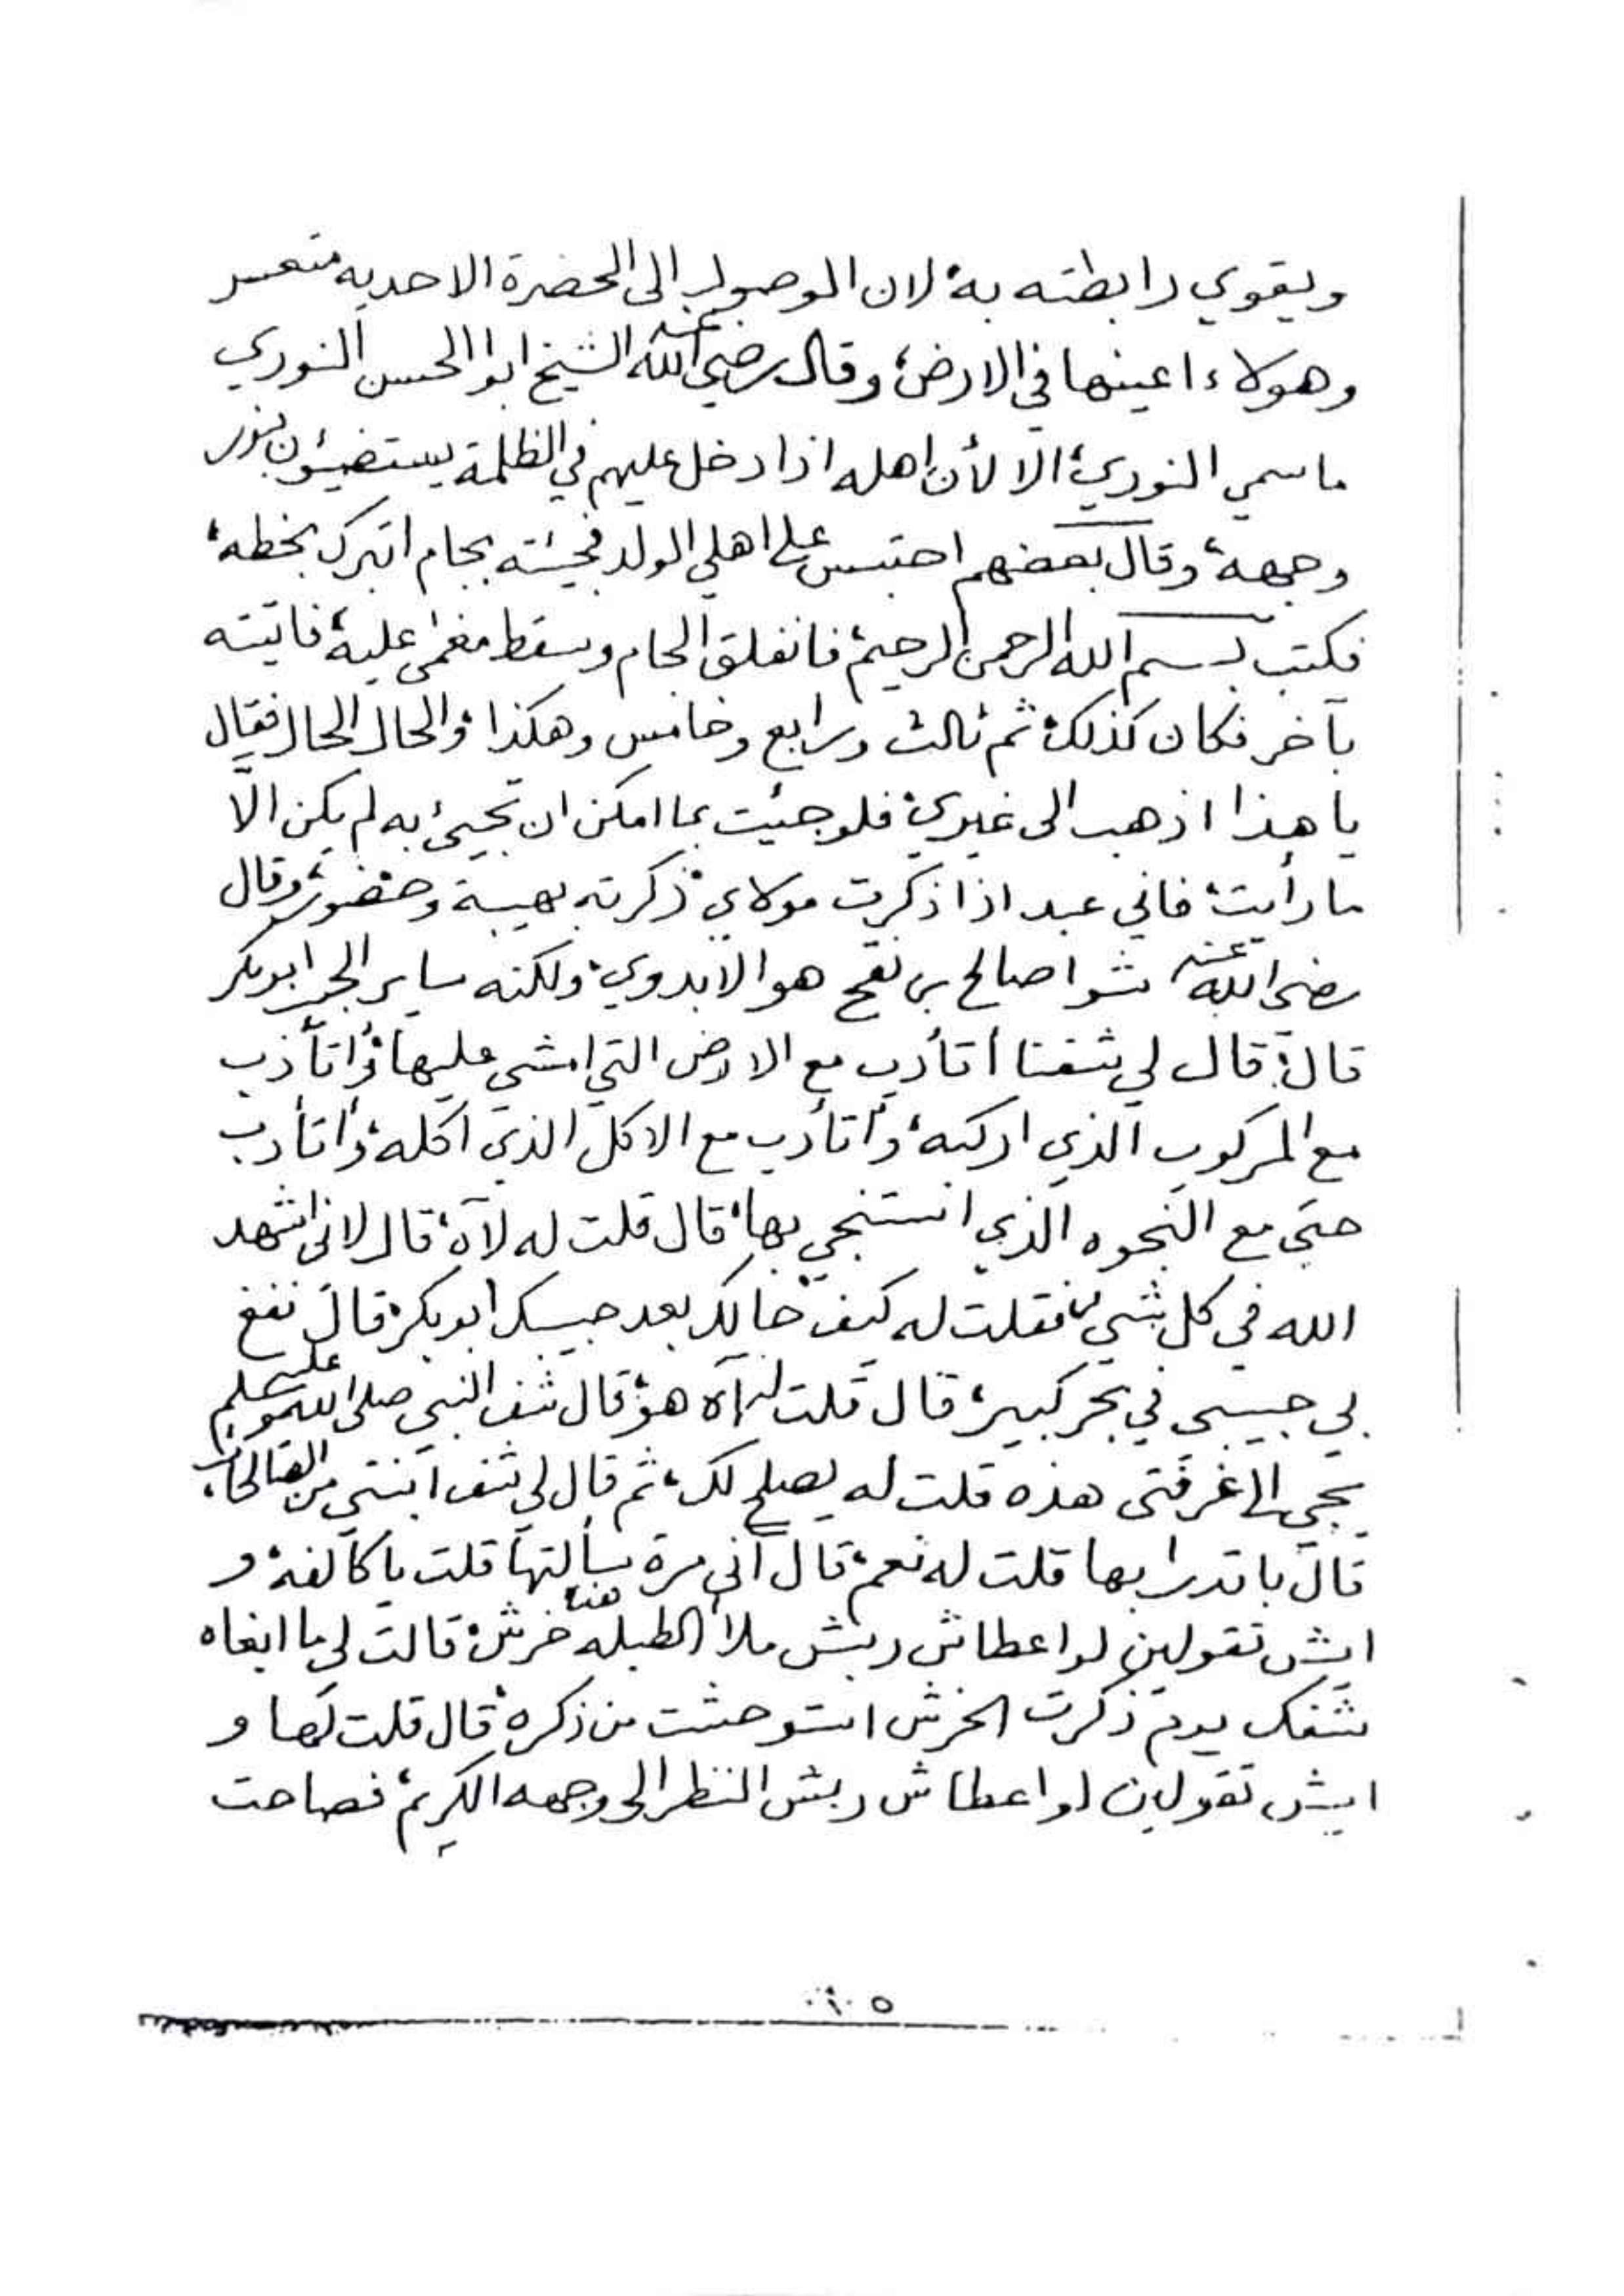 ويقوي رابطته به، لان الوصول الى الحضرة الاحديه متعسر
وهولاء اعينها في الارض، وقال رضي الله عنه الشيخ ابوا الحسن النوري
ما سمي النوري، الا لأن اهله اذا دخل عليهم في الظلمة يستضيئون بنور
وجهه، وقال بعضهم احتبس على اهلي الولد فجئته بجام اتبرك بخطه،
فكتب بسم الله الرحمن الرحيم، فانفلق الجام وسقط مغمى عليه، فاتيته
بآخر فكان كذلك، ثم ثالث ورابع وخامس وهكذا، والحال الحال فقال
يا هذا اذهب الى غيري، فلو جئت بما امكن ان تجيئ به لم يكن الّا
ما رأيت، فاني عبد اذا ذكرت مولاي، ذكرته بهيبة وحضور، وقال
رضي الله عنه شوا صالح بن نقح هو الا بدوي، ولكنه ساير الحبيب ابوبكر
قال: قال لي شفنا أتأدب مع الارض التي امشي عليها، وأتأدب
مع المركوب الذي اركبه، وأتأدب مع الاكل الذي آكله، وأتأدب
حتى مع النجوه الذي استنجي بها، قال قلت له لآه، قال لانى اشهد
الله في كل شي، فقلت له كيف حالك بعد حبيبك ابوبكر، قال نفغ
بي حبيبى في بحر كبير، قال قلت له آه هو، قال شف النبي صلى الله عليه وسلم
يجي الى غرفتى هذه قلت له يصلح لك، ثم قال لي شف ابنتي من الصالحات،
قال باتدرا بها قلت له نعم، قال انى مرة سألتها قلت يا كالفه، و
ايش تقولين لو اعطاش ربش ملا الطبله هذا خرش، قالت لي ما ابغاه
شفك يوم ذكرت الخرش استوحشت من ذكره، قال قلت لها و
ايش تقولين لو اعطاش ربش النظر الى وجهه الكريم، فصاحت